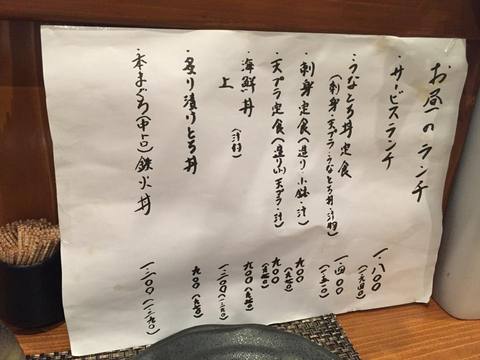 お昼のランチ
・サービスランチ 一、八〇〇
(一、九四〇)
・うなとろ丼定食 一、四〇〇
(刺身・天プラ・うなとろ丼・汁物) (一、五一〇)
・刺身定食(造り・小鉢・汁) 九〇〇
(九七〇)
・天プラ定食(造り 天プラ・汁) 九〇〇
(九七〇)
・海鮮丼(汁付) 九〇〇(九七〇)
上
・炙り漬けとろ丼 九〇〇(九七〇)
・本まぐろ(中トロ)鉄火丼 一、二〇〇(一、二九〇)